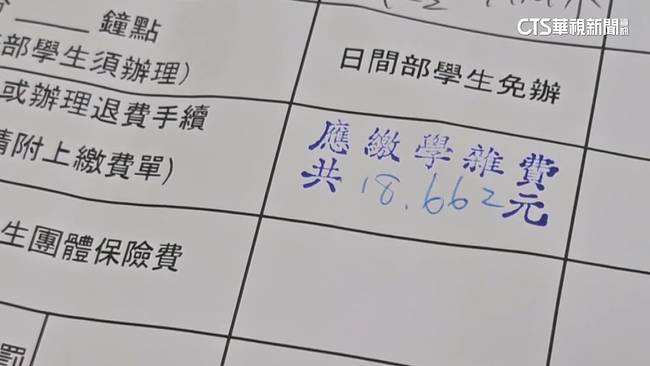 CTS華視新聞
鐘點
部學生須辦理)
日間部學生免辦
或辦理退費手續
請附上繳費單)
應繳學雜費
共18.662元
生團體保險費
罰